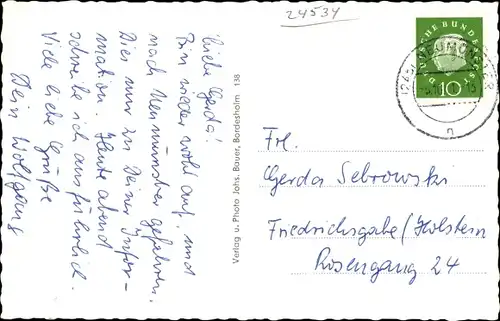 24534
Liebe Gerda!
Bin wieder wohl auf, und
nach Neumünster gefahren.
Dies nur zu Deiner Infor-
mation. Heute abend
schreibe ich ausführlich.
Viele liebe Grüße
Dein Wolfgang
Verlag u. Photo Johs. Bauer, Bordesholm 138
DEUTSCHE BUNDESPOST
10
NEUMÜNSTER
n
Frl.
Gerda Sebrowski
Friedrichsgabe/Holstein
Rosengang 24